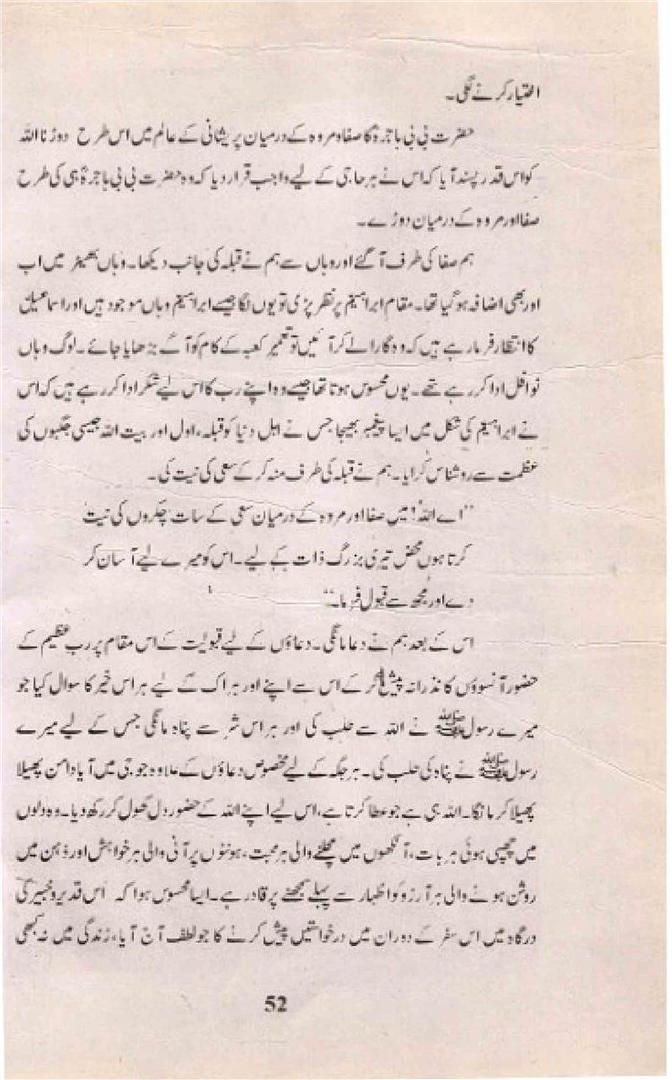 اختیار کرنے لگی۔
حضرت بی بی ہاجرہؑ کا صفا و مروہ کے درمیان پریشانی کے عالم میں اس طرح دوڑنا اللہ
کو اس قدر پسند آیا کہ اس نے ہر حاجی کے لیے واجب قرار دیا کہ وہ حضرت بی بی ہاجرہؑ ہی کی طرح
صفا اور مروہ کے درمیان دوڑے۔
ہم صفا کی طرف آ گئے اور وہاں سے ہم نے قبلہ کی جانب دیکھا۔ وہاں بھیڑ میں اب
اور بھی اضافہ ہو گیا تھا۔ مقام ابراہیمؑ پر نظر پڑی تو یوں لگا جیسے ابراہیمؑ وہاں موجود ہیں اور اسماعیلؑ
کا انتظار فرما رہے ہیں کہ وہ گارا لے کر آئیں تو تعمیر کعبہ کے کام کو آگے بڑھایا جائے۔ لوگ وہاں
نوافل ادا کر رہے تھے۔ یوں محسوس ہوتا تھا جیسے وہ اپنے رب کا اس لیے شکر ادا کر رہے ہیں کہ اس
نے ابراہیمؑ کی شکل میں ایسا پیغمبر بھیجا جس نے اہل دنیا کو قبلہ، اول اور بیت اللہ جیسی جگہوں کی
عظمت سے روشناس کرایا۔ ہم نے قبلہ کی طرف منہ کر کے سعی کی نیت کی۔
"اے اللہ! میں صفا اور مروہ کے درمیان سعی کے سات چکروں کی نیت
کرتا ہوں محض تیری بزرگ ذات کے لیے۔ اس کو میرے لیے آسان کر
دے اور مجھ سے قبول فرما۔"
اس کے بعد ہم نے دعا مانگی۔ دعاؤں کے لیے قبولیت کے اس مقام پر رب عظیم کے
حضور آنسوؤں کا نذرانہ پیش کر کے اس سے اپنے اور ہر اک کے لیے ہر اس خیر کا سوال کیا جو
میرے رسول ﷺ نے اللہ سے طلب کی اور ہر اس شر سے پناہ مانگی جس کے لیے میرے
رسول ﷺ نے پناہ کی طلب کی۔ ہر جگہ کے لیے مخصوص دعاؤں کے علاوہ جو جی میں آیا دامن پھیلا
پھیلا کر مانگا۔ اللہ ہی ہے جو عطا کرتا ہے، اس لیے اپنے اللہ کے حضور دل کھول کر رکھ دیا۔ وہ دلوں
میں چھپی ہوئی ہر بات، آنکھوں میں مچلنے والی ہر محبت، ہونٹوں پر آنی والی ہر خواہش اور ذہن میں
روشن ہونے والی ہر آرزو کو اظہار سے پہلے سمجھنے پر قادر ہے۔ ایسا محسوس ہوا کہ اس قدیر و خبیر کی
درگاہ میں اس سفر کے دوران میں درخواستیں پیش کرنے کا جو لطف آج آیا، زندگی میں نہ کبھی
52